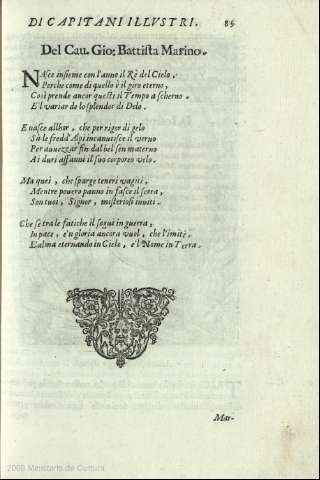 DI CAPITANI ILLVSTRI. 85
Del Cau. Gio: Battista Marino.
NAsce insieme con l'anno il Rè del Cielo,
Perche come di quello è il giro eterno,
Così prende ancor questi il Tempo a scherno
E'l variar de lo splendor di Delo.
E nasce allhor, che per rigor di gelo
Sù le fredd'Alpi incanutisce il verno
Per auuezzar fin dal bel sen materno
Ai duri affanni il suo corporeo velo.
Ma quei, che sparge teneri vagiti,
Mentre pouero panno in fasce il serra,
Son tuoi, Signor, misteriosi inuiti.
Che se tra le fatiche il segui in guerra,
In pace, e'n gloria ancora vuol, che l'imiti
L'alma eternando in Cielo, e'l Nome in Terra.
Mar-
2009 Ministerio de Cultura